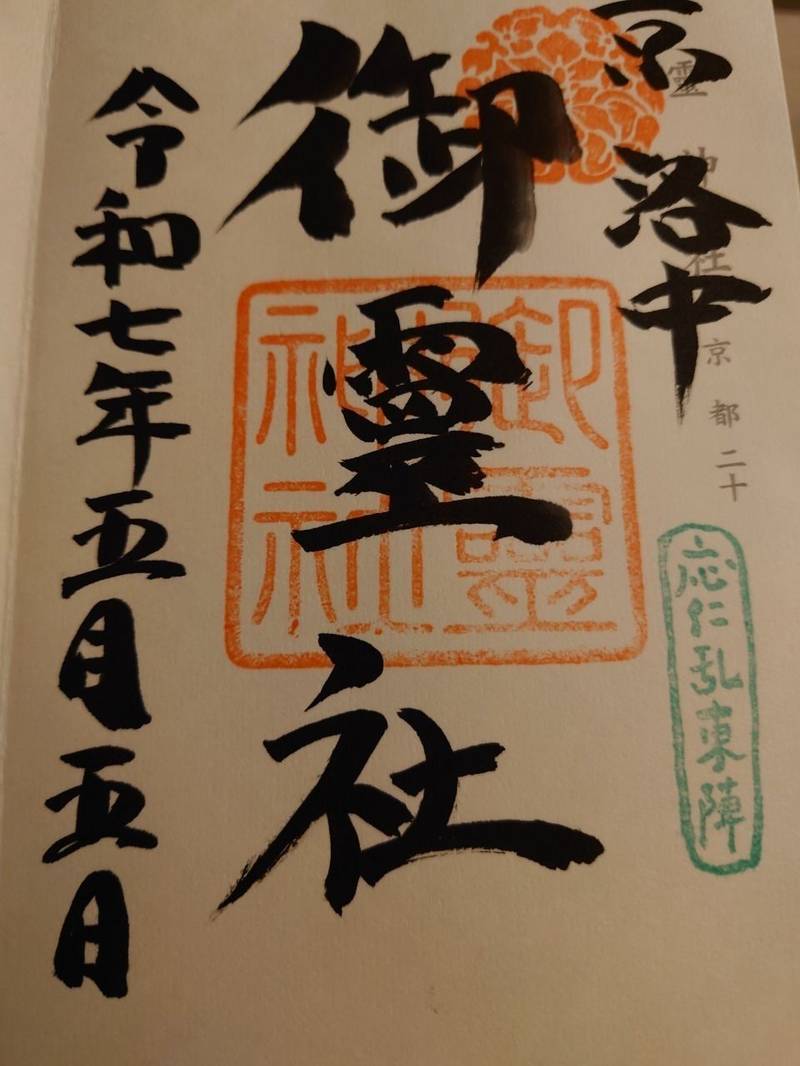 京洛中
靈神社
京都二十
応仁乱東陣
御靈社
御靈
神社
令和七年五月五日